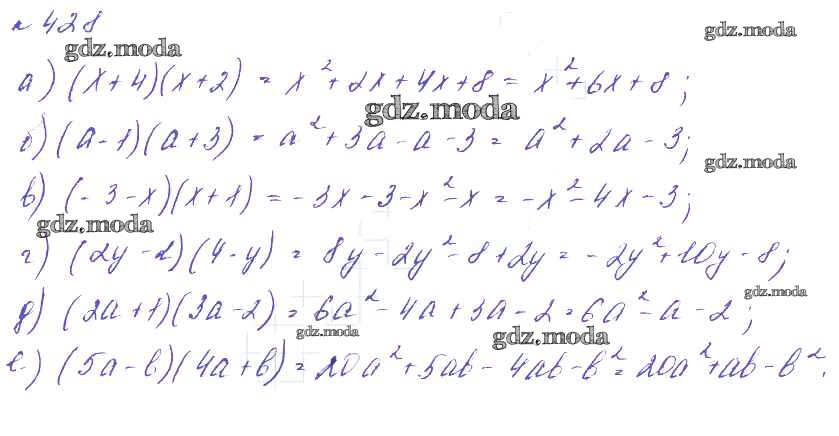 № 428
gdz.moda
gdz.moda
а) (x+4)(x+2) = x²+2x+4x+8 = x²+6x+8;
gdz.moda
б) (a-1)(a+3) = a²+3a-a-3 = a²+2a-3;
gdz.moda
в) (-3-x)(x+1) = -3x-3-x²-x = -x²-4x-3;
gdz.moda
г) (2y-2)(4-y) = 8y-2y²-8+2y = -2y²+10y-8;
gdz.moda
д) (2a+1)(3a-2) = 6a²-4a+3a-2 = 6a²-a-2;
gdz.moda
gdz.moda
е) (5a-b)(4a+b) = 20a²+5ab-4ab-b² = 20a²+ab-b².